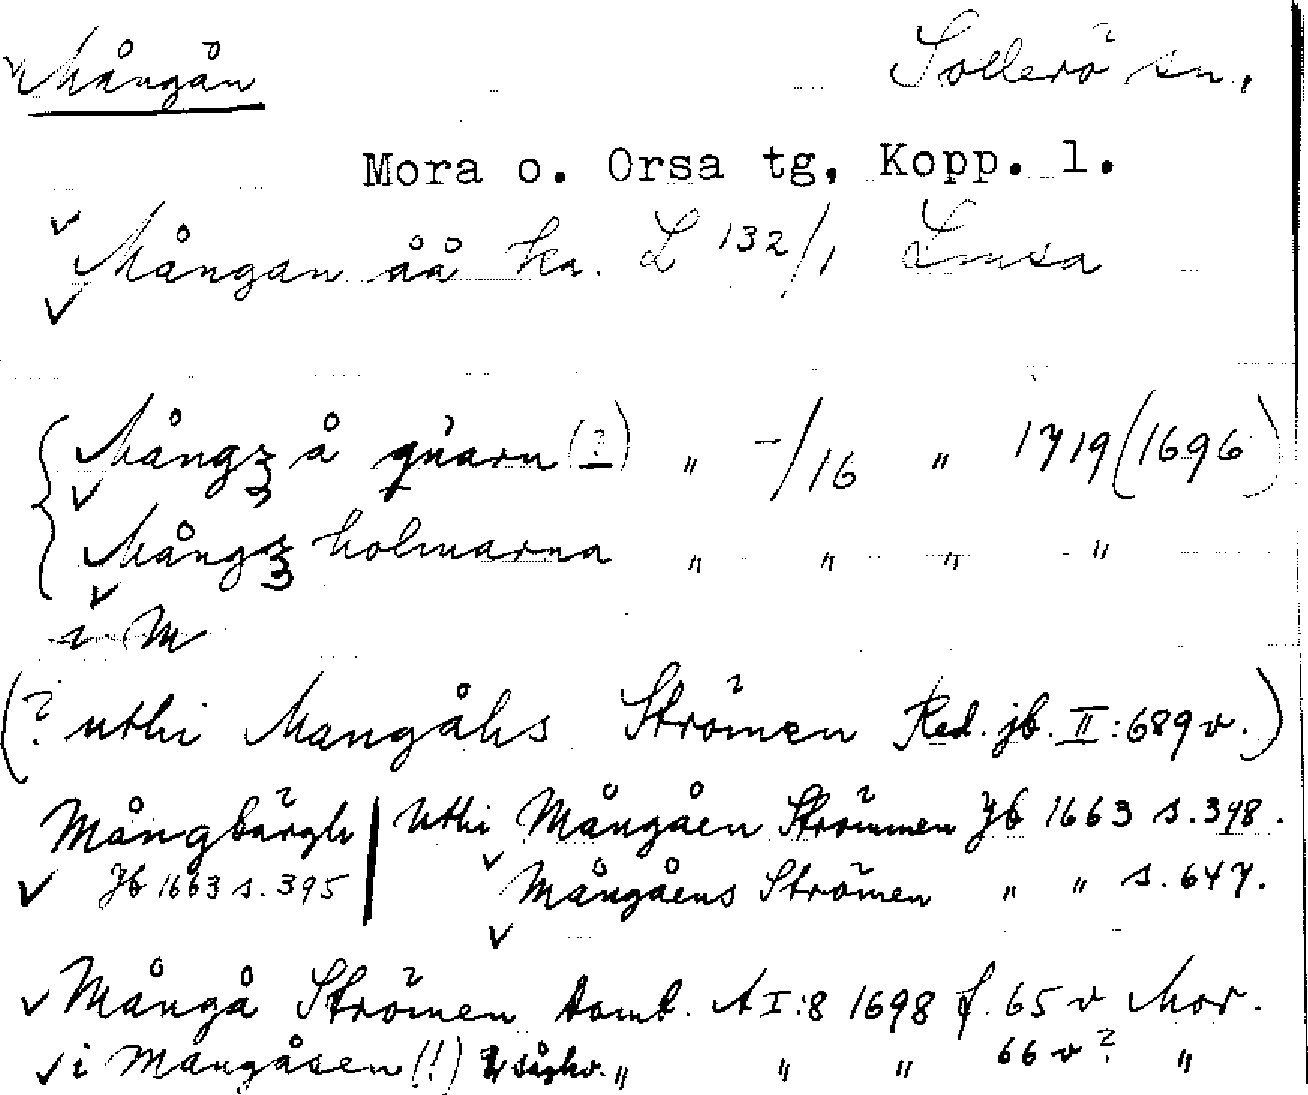 Mångån Sollerö sn.,
Mora o. Orsa tg, Kopp. l.
Mångan åå ka. L 132/1 Limsa
Mångz å quarn (?) " -/16 " 1719 (1696)
Mångz holmarna " " " "
i M
(? uthi Mangåhs Strömen Red. jb. II:689 v.)
Mångbärgh | uthi Mångåen Strömmen Jb 1663 s. 398.
Jb 1663 s. 395 Mångåens Strömen " " s. 647.
Mångå Strömen Domb. A I:8 1698 f. 65 v Mor.
i Mangåsen (!) sågkv. " " " 66 v? "